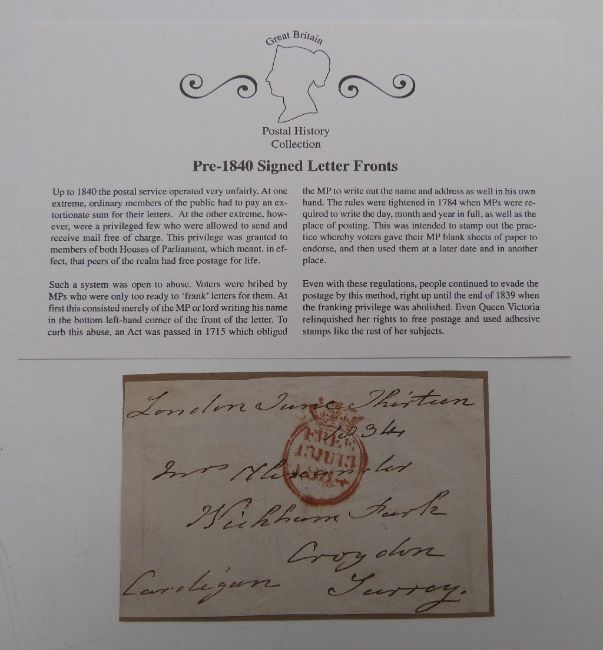 Great Britain
Postal History
Collection
Pre-1840 Signed Letter Fronts
Up to 1840 the postal service operated very unfairly. At one
extreme, ordinary members of the public had to pay an ex-
tortionate sum for their letters. At the other extreme, how-
ever, were a privileged few who were allowed to send and
receive mail free of charge. This privilege was granted to
members of both Houses of Parliament, which meant, in ef-
fect, that peers of the realm had free postage for life.
Such a system was open to abuse. Voters were bribed by
MPs who were only too ready to 'frank' letters for them. At
first this consisted merely of the MP or lord writing his name
in the bottom left-hand corner of the front of the letter. To
curb this abuse, an Act was passed in 1715 which obliged
the MP to write out the name and address as well in his own
hand. The rules were tightened in 1784 when MPs were re-
quired to write the day, month and year in full, as well as the
place of posting. This was intended to stamp out the prac-
tice whereby voters gave their MP blank sheets of paper to
endorse, and then used them at a later date and in another
place.
Even with these regulations, people continued to evade the
postage by this method, right up until the end of 1839 when
the franking privilege was abolished. Even Queen Victoria
relinquished her rights to free postage and used adhesive
stamps like the rest of her subjects.
London June Thirteen
1834
FREE
13JU13
1834
Mrs Alexander
Wickham Park
Croydon
Cardigan Surrey.